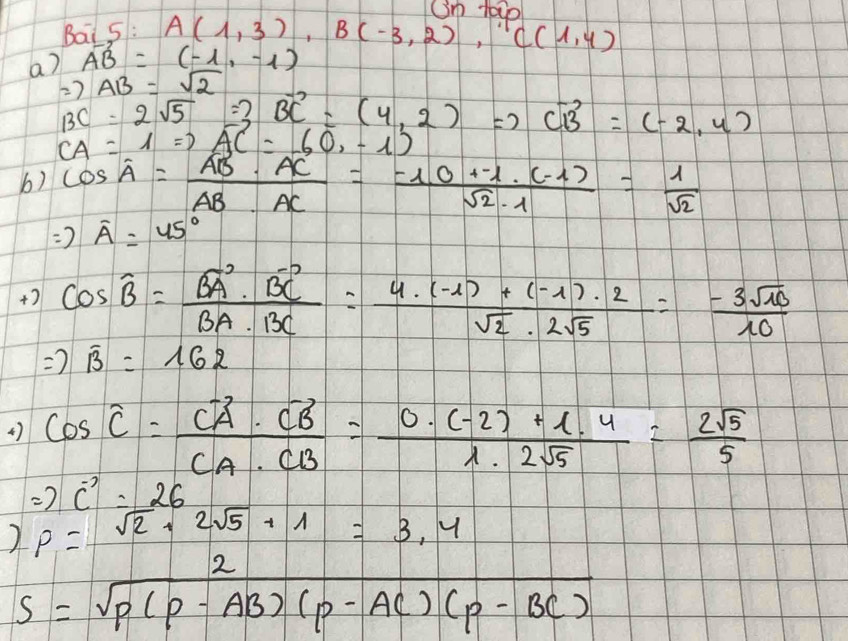 Ôn tập
Bài 5: A(1,3), B(-3,2), C(1,4)
a) AB⃗ = (-1,-1)
=> AB = √2
BC = 2√5 => BC⃗ = (4,2) => CB⃗ = (-2,4)
CA = 1 => AC⃗ = (0,-1)
b) Cos Â = (AB⃗ . AC⃗)/(AB . AC) = (-1.0 + -1.(-1))/(√2.1) = 1/√2
=> Â = 45°
+) Cos B̂ = (BA⃗ . BC⃗)/(BA . BC) = (4.(-1) + (-1).2)/(√2 . 2√5) = (-3√10)/10
=> B̂ = 162
+) Cos Ĉ = (CA⃗ . CB⃗)/(CA . CB) = (0.(-2) + 1.4)/(1. 2√5) = (2√5)/5
=> Ĉ = 26
) P = (√2 + 2√5 + 1)/2 = 3,4
S = √(p(p - AB)(p - AC)(p - BC))